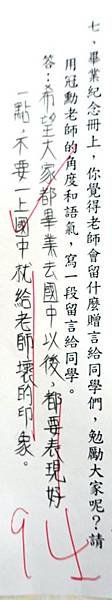 七、畢業紀念冊上，你覺得老師會留什麼贈言給同學們，勉勵大家呢？請
用冠勳老師的角度和語氣，寫一段留言給同學。
答：希望大家都畢業去國中以後，都要表現好
一點，不要一上國中就給老師壞的印象。
94